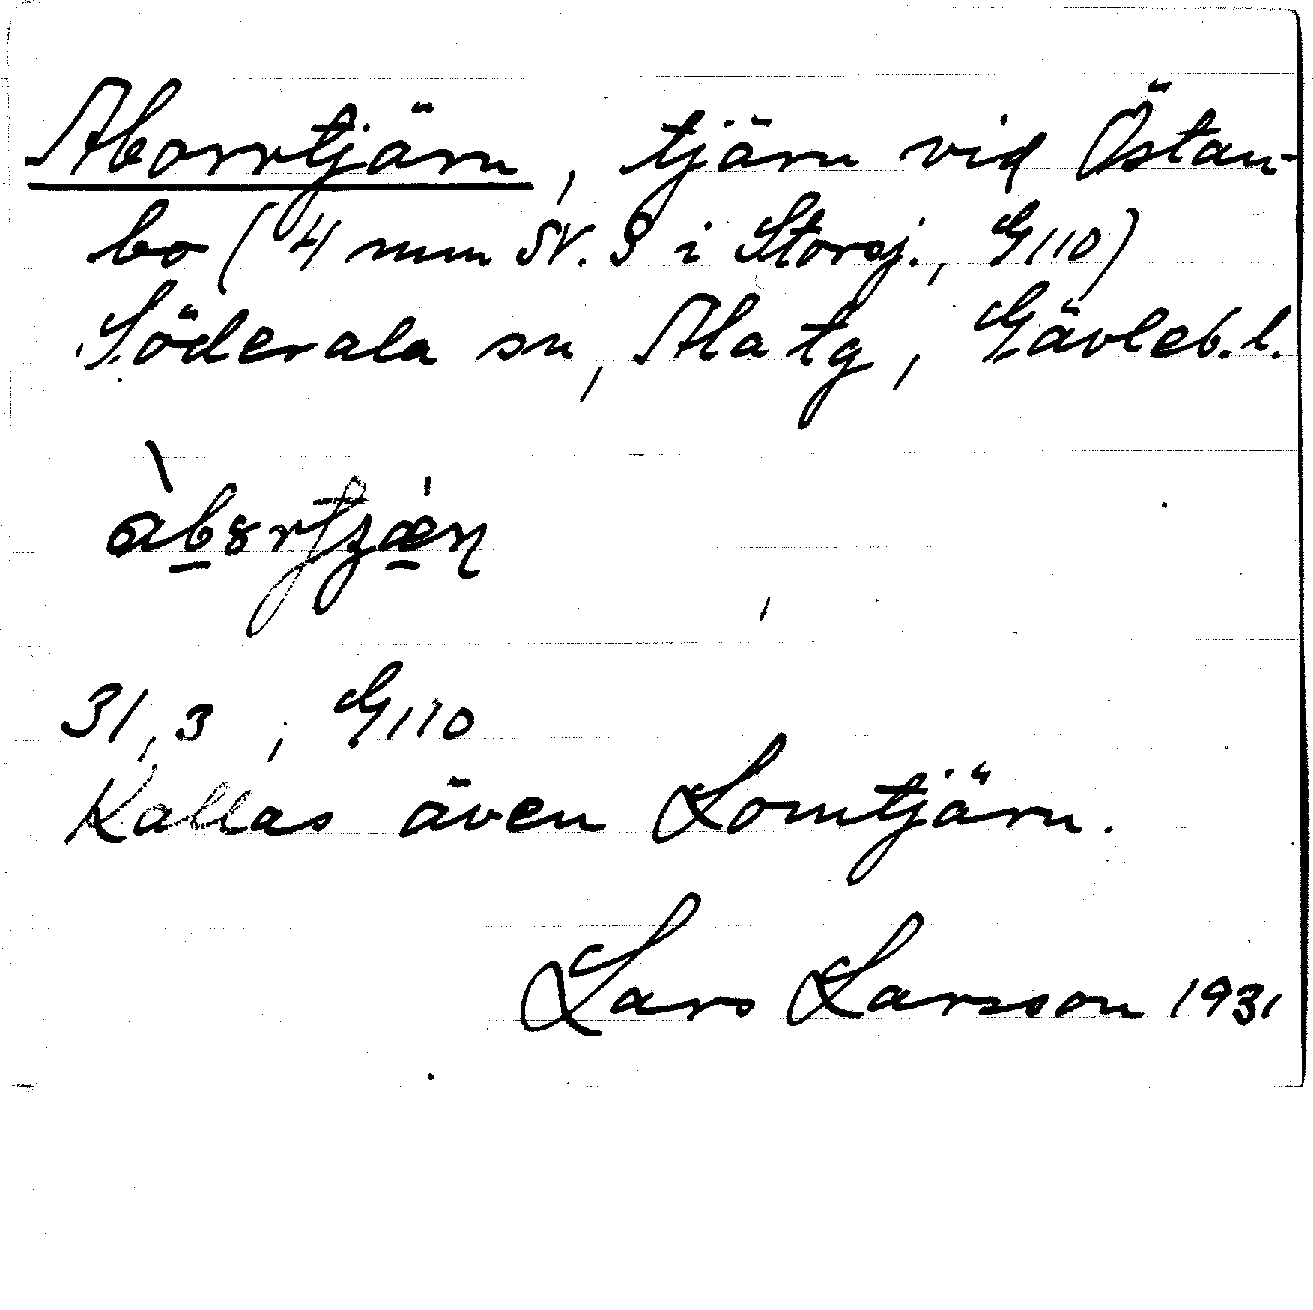 Aborrtjärn, tjärn vid Östan-
bo (4 mm SV. S i Storsj., G110)
Söderala sn, Ala tg, Gävleb. l.
31,3, G110
Kallas även Lomtjärn.
Lars Larsson 1931